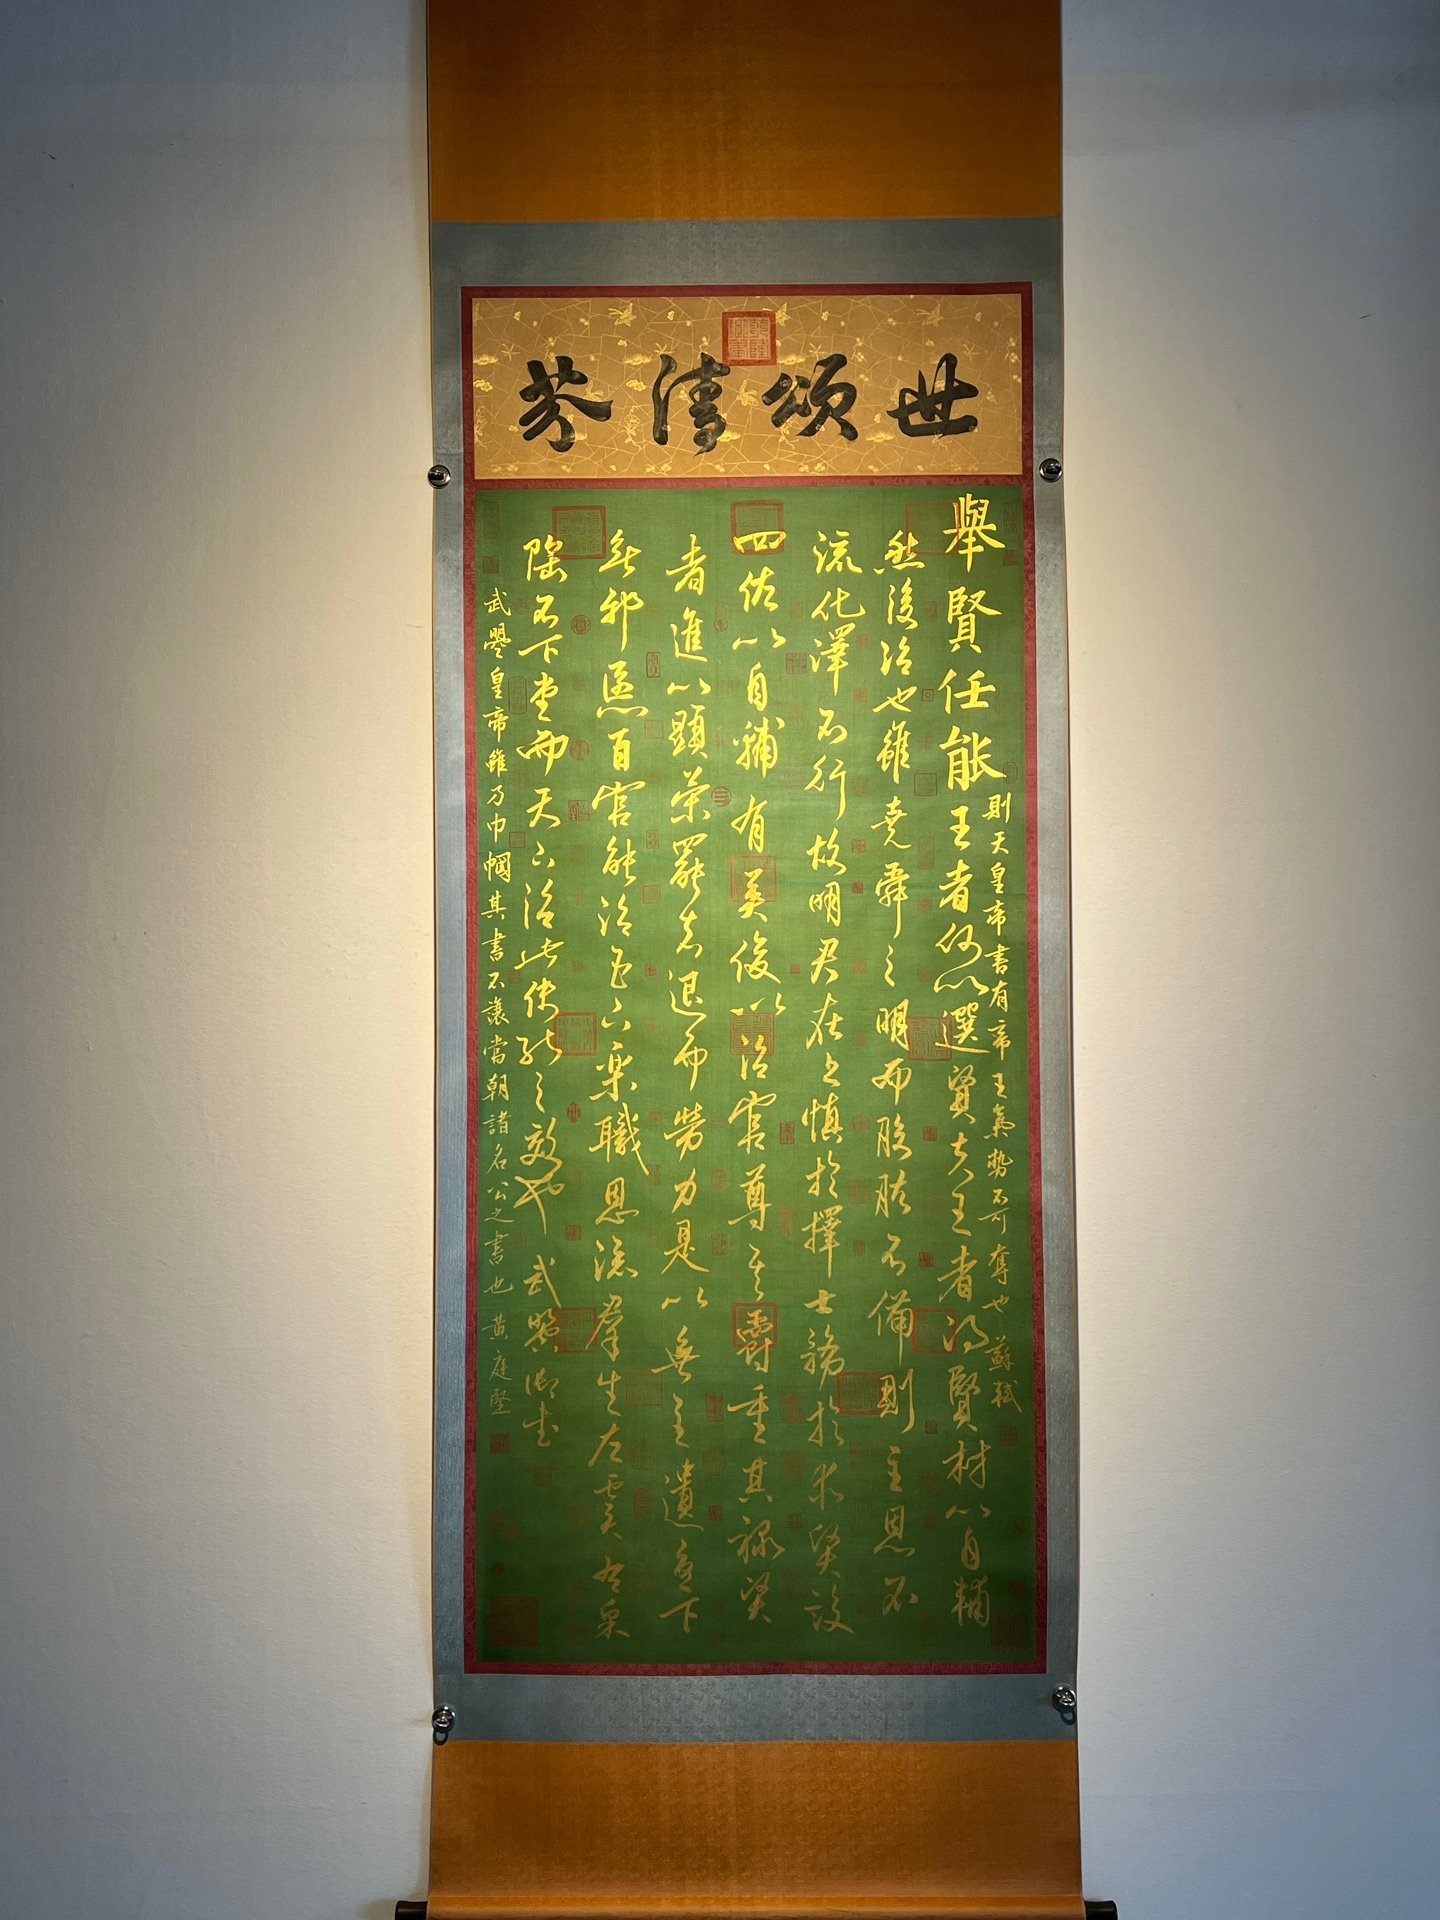 世頌清芬
舉賢任能王者何以選賢夫王者得賢材以自輔
然後治也雖堯舜之明而股肱不備則主恩不
流化澤不行故明君在上慎於擇士務於求賢設
四佐以自輔有英俊以治官尊其爵重其祿賢
者進以顯榮罷者退而勞力是以無主遺憂下
無邪慝百官能治臣下樂職恩流群生左雲右皋
陶不下堂而天下治此使能之效也 武曌御書
則天皇帝書有帝王氣勢不可奪也 蘇軾
武曌皇帝雖乃巾幗其書不讓當朝諸名公之書也 黃庭堅